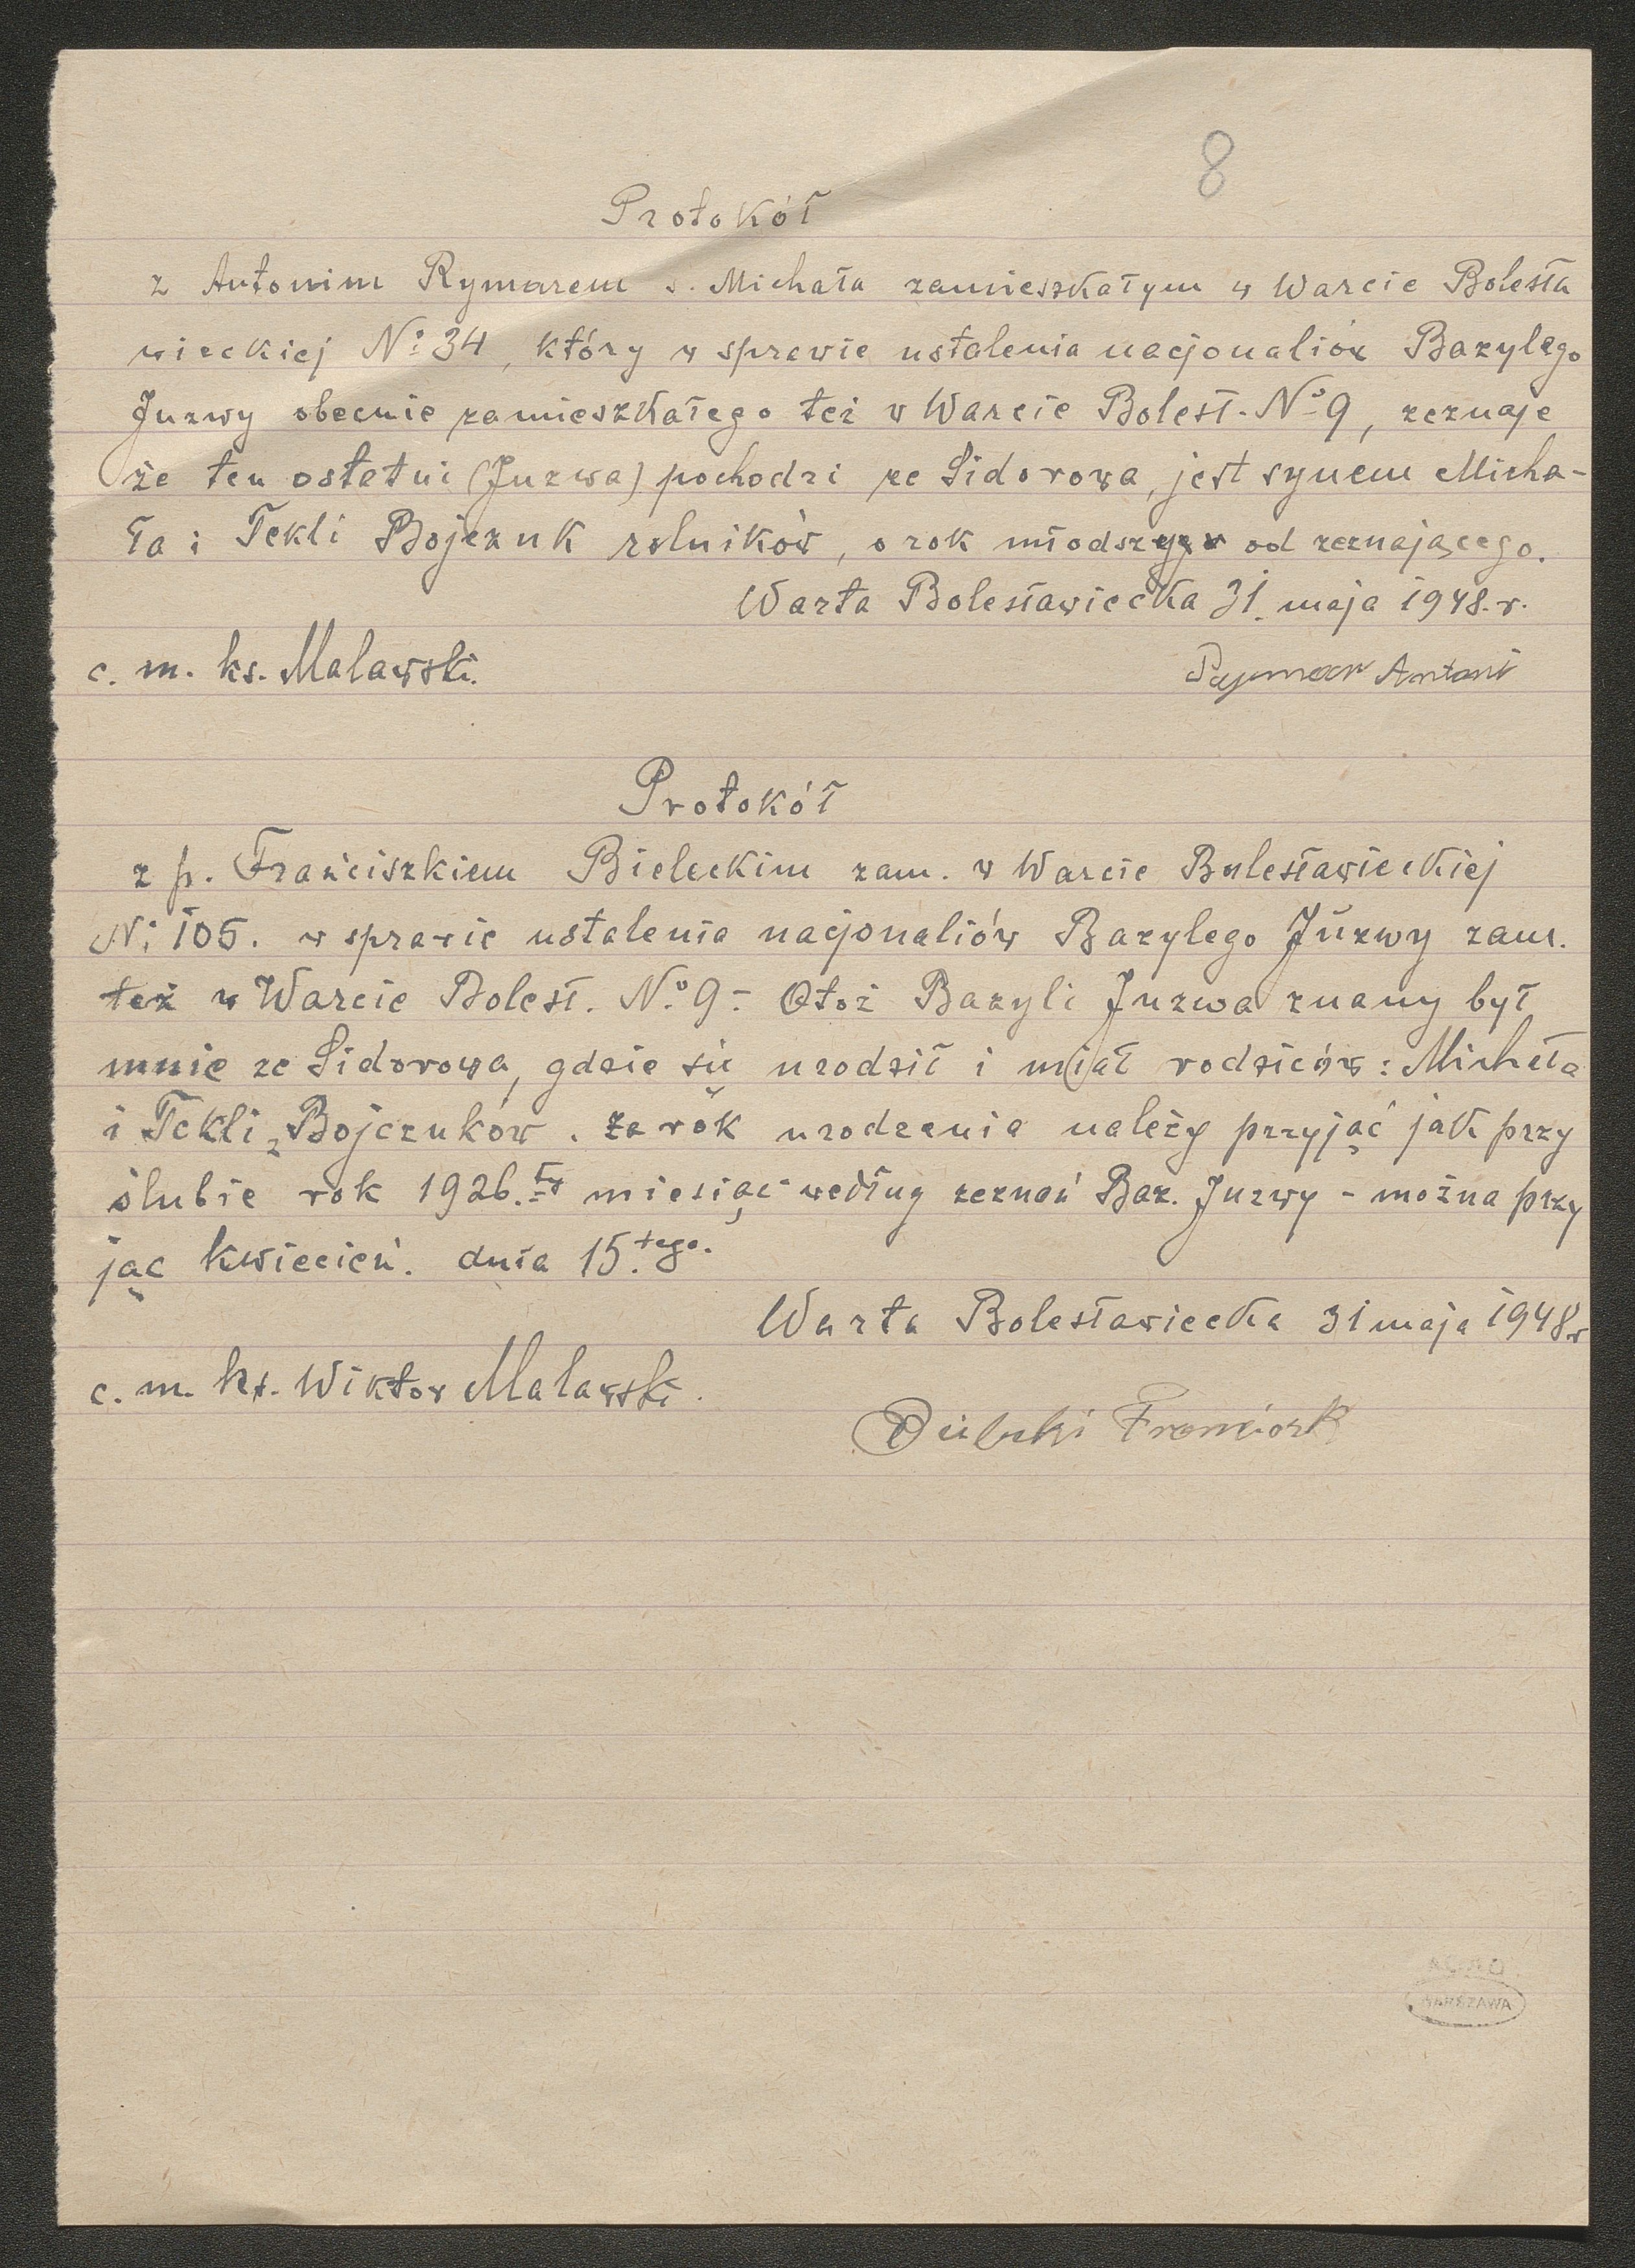 8
Protokół
z Antonim Rymarem s. Michała zamieszkałym w Warcie Bolesła
wieckiej No 34, który w sprawie ustalenia nacjonaliów Bazylego
Juzwy obecnie zamieszkałego też w Warcie Bolesł. No 9, zeznaje
że ten ostatni (Juzwa) pochodzi ze Sidorowa, jest synem Micha-
ła i Tekli Bojczuk rolników, o rok młodszy od zeznającego.
Warta Bolesławiecka 31. maja 1948. r.
c. m. ks. Malawski.
Rymar Antoni
Protokół
z p. Franciszkiem Bieleckim zam. w Warcie Bolesławieckiej
No 105. w sprawie ustalenia nacjonaliów Bazylego Juzwy zam.
też w Warcie Bolesł. No 9 - Otoż Bazyli Juzwa znany był
mnie ze Sidorowa, gdzie się urodził i miał rodziców: Michała
i Tekli z Bojczuków. Za rok urodzenia należy przyjąć jak przy
ślubie rok 1926. miesiąc według zeznań Baz. Juzwy - można przy
jąc kwiecień. dnia 15.tego.
Warta Bolesławiecka 31 maja 1948 r
c. m. ks. Wiktor Malawski.
Bielecki Franciszk
WARSZAWA